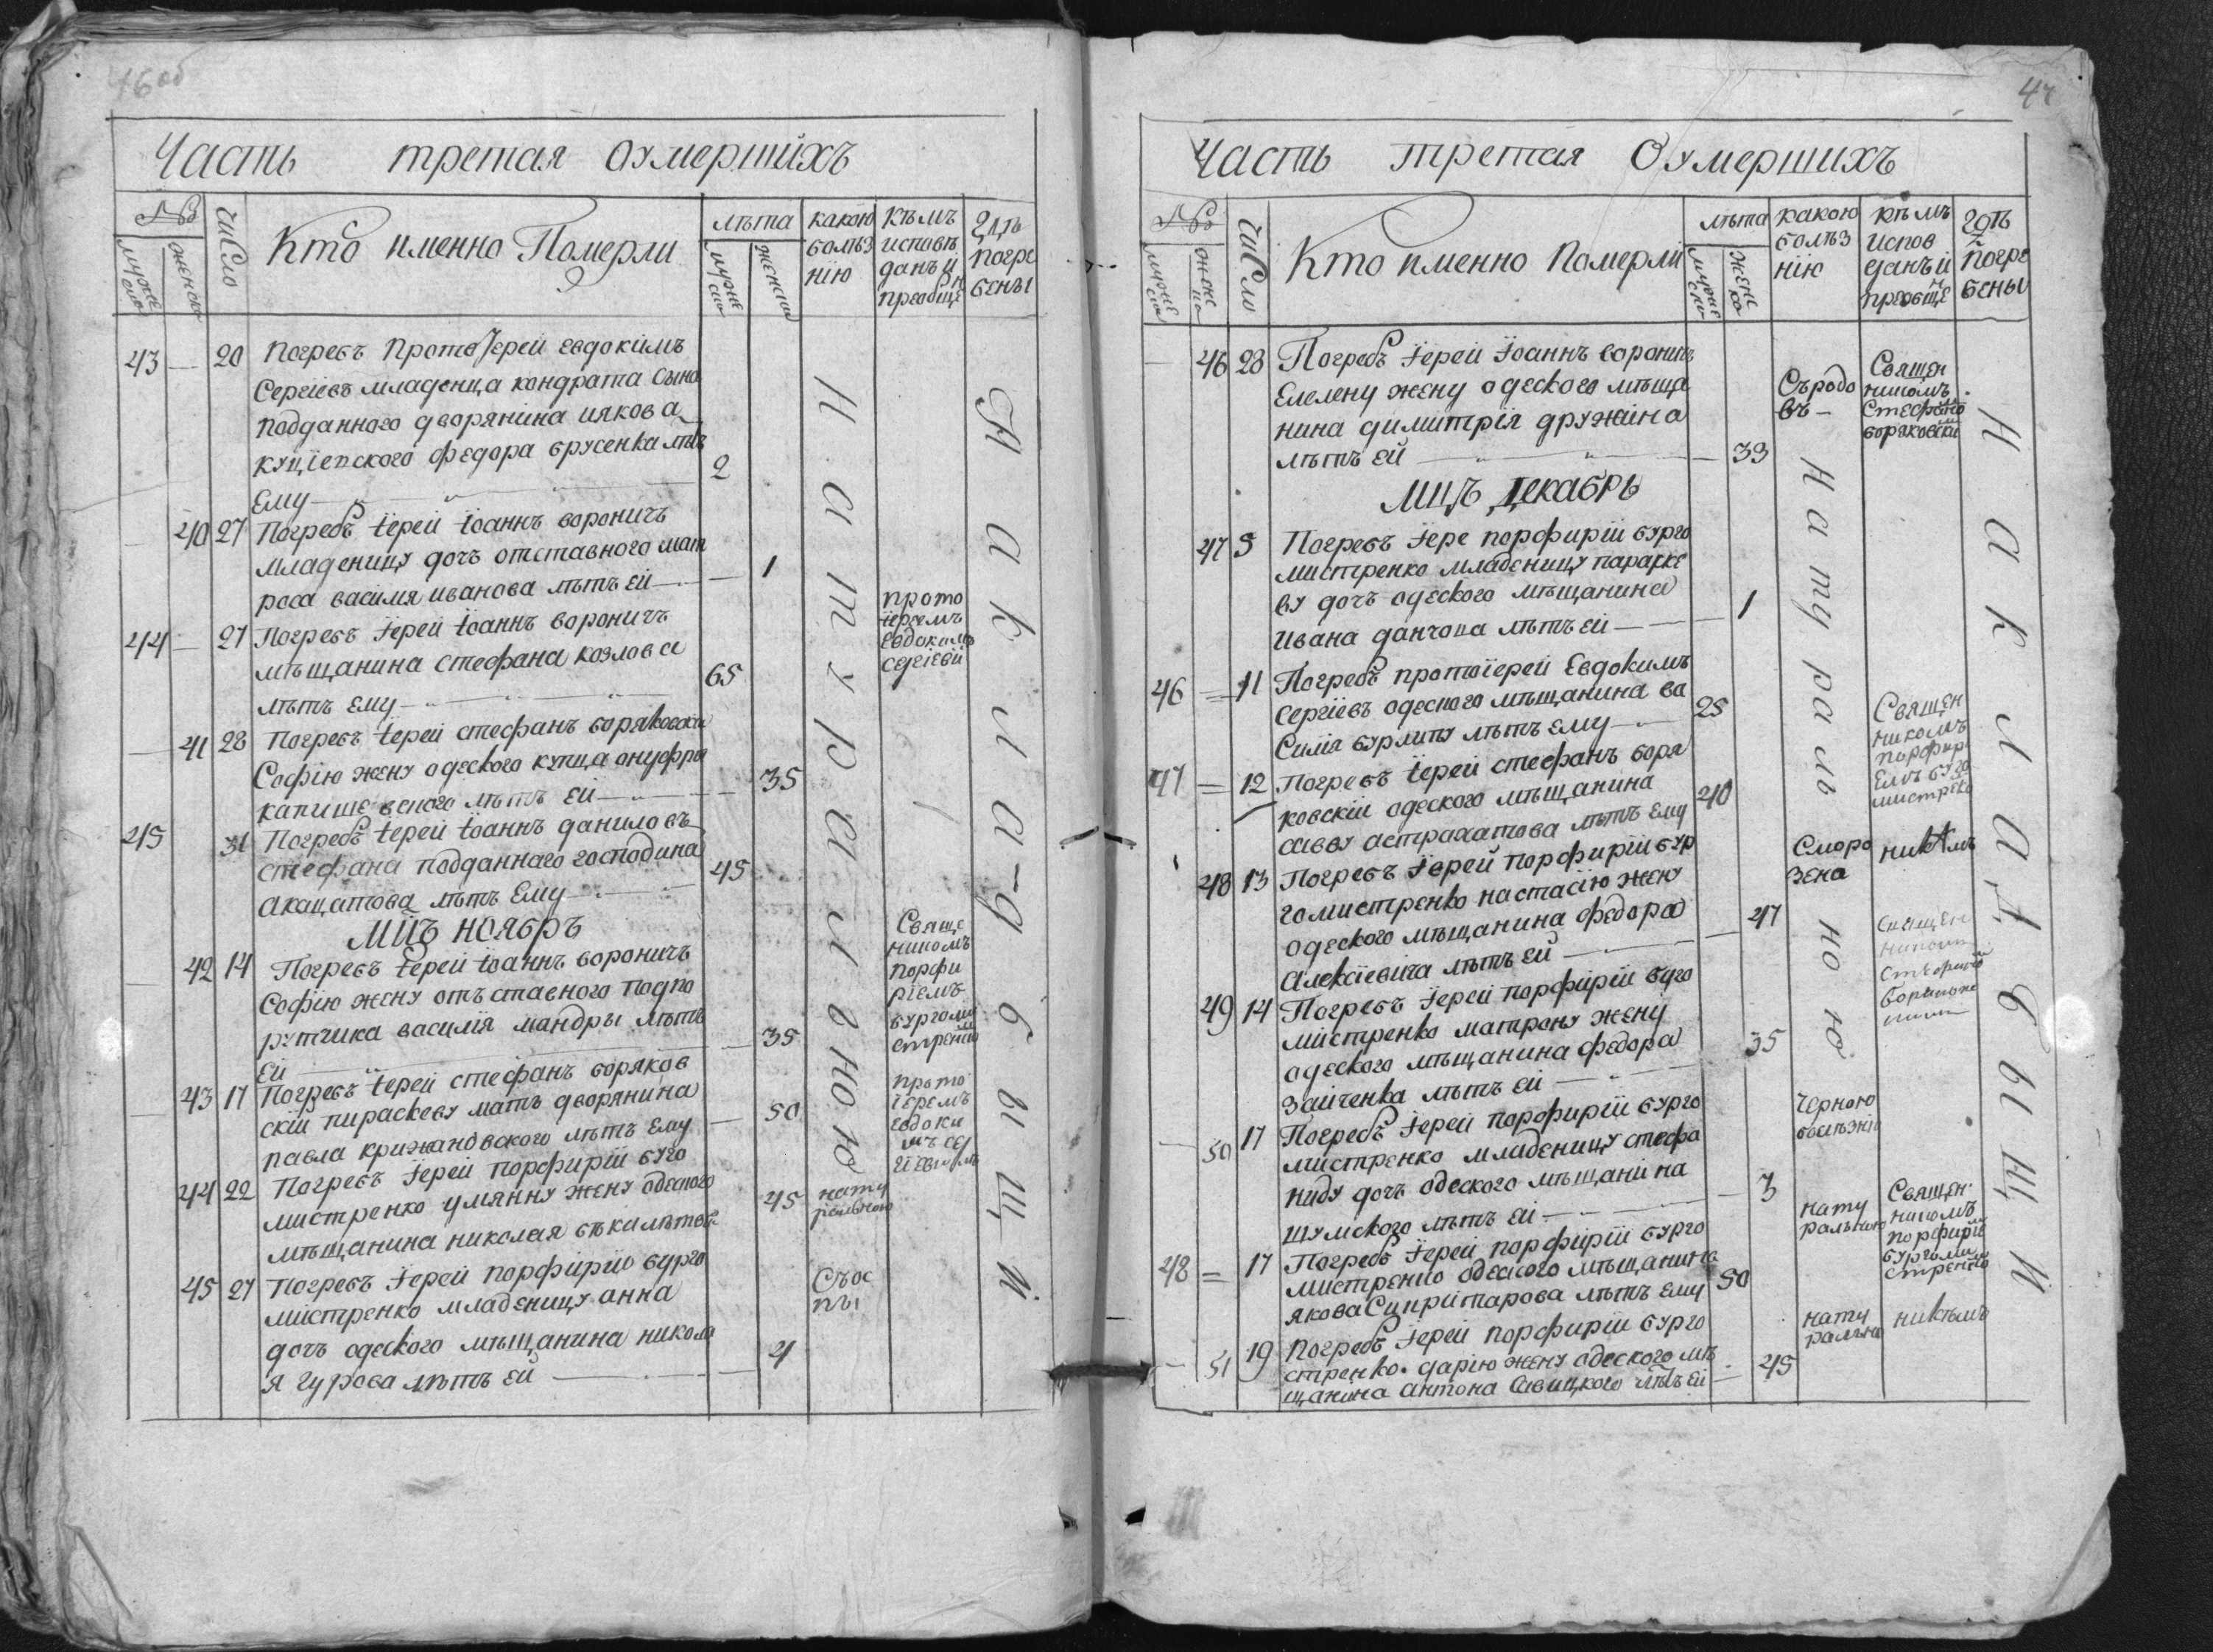 46 об
Часть третая Оумершихъ
№
мужеска
женска
число
Кто именно Померли
лѣта
мужеска
женска
какою болѣз нію
кѣмъ исповѣ данъ и преобще
гдѣ погре бены
43 — 20 Погребъ Протоіерей евдокимъ
Сергіевъ младенца кондрата сына
подданного дворянина иякова
куціевского федора брусенка лѣтъ
Ему — 2
— 40 27 Погребъ іерей іоаннъ вороничъ
младеницу дочъ отставного мат
роса василя иванова лѣтъ ей — 1
44 — 27 Погребъ іерей іоаннъ вороничъ
мѣщанина стефана козлова
лѣтъ ему — 65
прото
іереемъ
Евдокимъ
сергіевй
— 41 28 Погребъ іерей стефанъ боряковски
Софію жену одеского купца онуфрія
капишевского лѣтъ ей — 35
45 31 Погребъ іерей іоаннъ даниловъ
стефана подданнаго господина
акацатова лѣтъ Ему — 45
МЦЪ НОЯБРЪ
— 42 14 Погребъ іерей іоаннъ вороничъ
Софію жену отъставного подпо
рутчика василія мандры лѣтъ
Ей — 35
Свяще
никомъ
порфи
ріемъ
бургоми
стренко
— 43 17 Погребъ іерей стефанъ боряков
скій пираскеву матъ дворянина
павла крижановского лѣтъ Ему — 50
прото
іеремъ
евдоки
мъ сер
гіевымъ
44 22 Погребъ іерей порфирій бурго
мистренко умянну жену одеского
мѣщанина николая бѣки лѣтъ 45
нату
ральною
45 27 Погребъ іерей порфирію бурго
мистренко младеницу анна
дочъ одеского мѣщанина никола
я гурова лѣтъ ей — 4
Съос
пы
Натуральною
На кладбищи
47
Часть третая Оумершихъ
№
мужеска
женска
число
Кто именно Померли
лѣта
мужеска
женска
какою болѣз нію
кѣмъ испов данъ и преобще
гдѣ погре бены
— 46 28 Погребъ іерей іоаннъ вороничъ
Елелену жену одеского мѣща
нина димитрія дружина
лѣтъ ей — 33
Съродо
въ —
Священ
никомъ
Стефано
боряковски
МЦЪ ДЕКАБРЬ
47 5 Погребъ іере порфирій бурго
мистренко младеницу параске
ву дочъ одеского мѣщанина
ивана данчова лѣтъ ей — 1
46 — 11 Погребъ протоіерей Евдокимъ
Сергіевъ одеского мѣщанина ва
силія бурлипу лѣтъ ему — 25
Священ
никомъ
порфир
Емъ бурго
мистренко
47 = 12 Погребъ іерей стефанъ боря
ковскій одеского мѣщанина
савву астрахатова лѣтъ Ему 40
48 13 Погребъ іерей порфирій бур
гомистренко настасію жену
одеского мѣщанина федора
Алексіевича лѣтъ ей — 47
Сморо
зена
никѣмъ
49 14 Погребъ іерей порфирій бурго
мистренко матрону жену
одеского мѣщанина федора
зайченка лѣтъ ей — 35
священ
никомъ
стефано
боряковс
ким
— 50 17 Погребъ іерей порфирій бурго
мистренко младеницу стефа
ниду дочъ одеского мѣщанина
шумского лѣтъ ей — 3
Черною
болѣзнію
48 = 17 Погребъ іерей порфирій бурго
мистренко одеского мѣщанина
якова Сипритарова лѣтъ ему 50
нату
ральною
Священ
никомъ
порфиріе
бургоми
стренко
— 51 19 Погребъ іерей порфирій бурго
стренко дарію жену одеского мѣ
щанина антона савицкого лѣтъ ей — 45
нату
рально
никѣмъ
Натуральною
На кладбищи